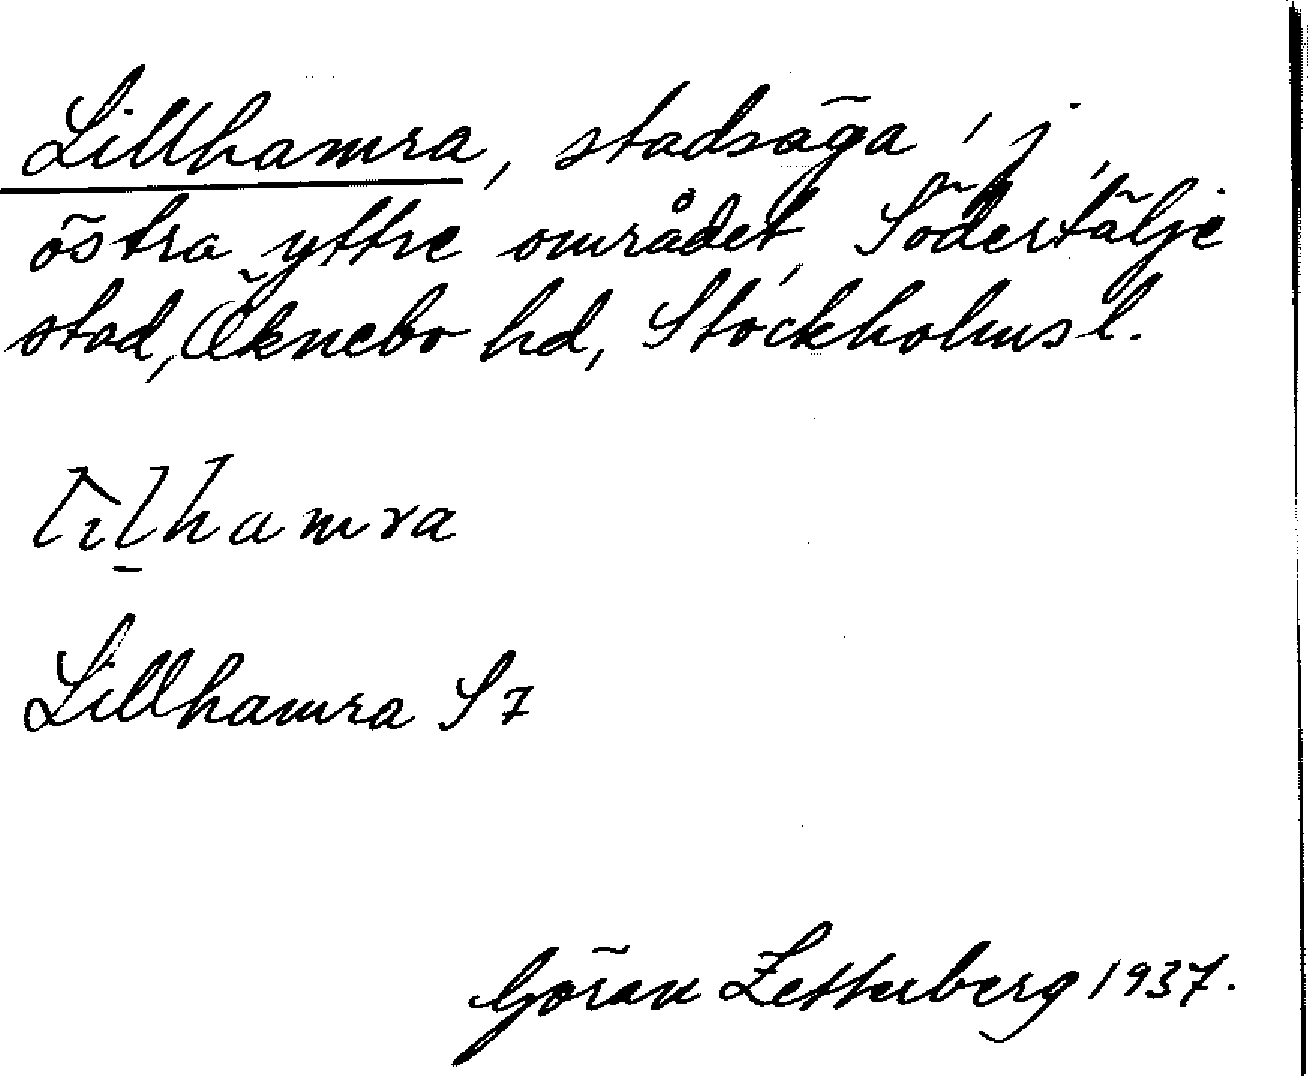 Lillhamra, stadsäga i
östra yttre området, Södertälje
stad, Öknebo hd, Stockholms l.
lilhamra
Lillhamra S7
Göran Zetterberg 1937.